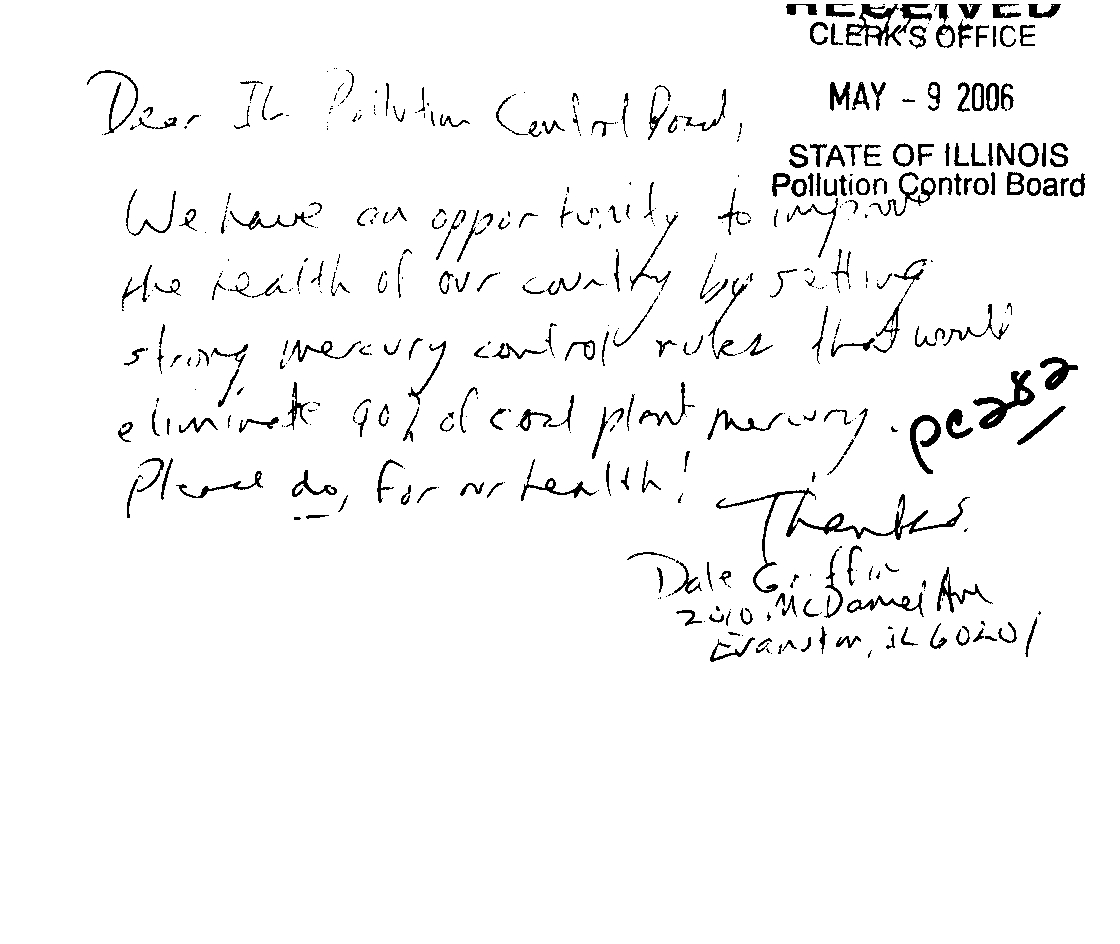 RECEIVED
CLERK'S OFFICE
MAY - 9 2006
STATE OF ILLINOIS
Pollution Control Board
Dear IL Pollution Control Board,
We have an opportunity to improve
the health of our country by setting
strong mercury control rules that would
eliminate 90% of coal plant mercury.
Please do, for our health!
pc282
Thanks.
Dale Griffin
McDaniel Ave
Evanston, IL 60201